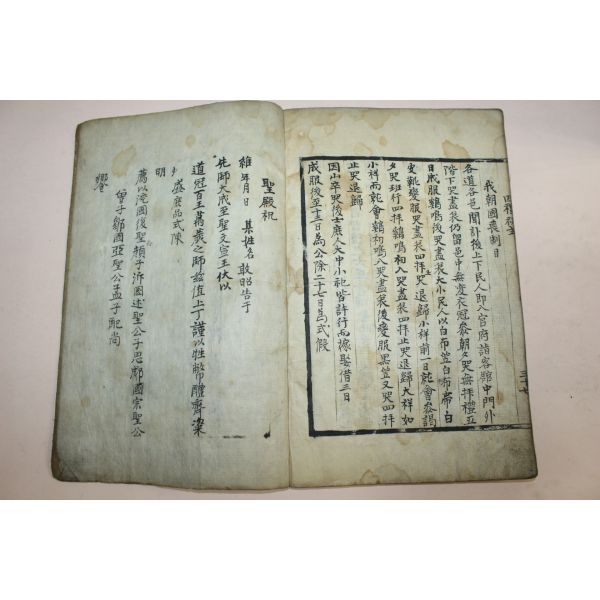 我朝國喪制目
各道各邑聞訃後上下民人即入官府詣客館中門外
階下哭盡哀仍留邑中無變衣冠參朝夕哭無拜禮並
日成服鷄鳴後哭盡哀大小民人以白布笠白布帶白
哭盡哀四拜哭退歸小祥前一日乾會參謁
夕哭班行四拜鷄鳴初入哭盡哀四拜止哭退歸大祥如
小祥而乾會鷄初鳴入哭盡哀後變服黑笠又哭四拜
止哭退歸
因山卒哭後士庶人大中小祀皆許行而嫁娶借三日
成服後至十三日爲公除二十七日爲式假
聖殿祝
維年月日 某姓名敢昭告于
先師大成至聖文宣王伏以
道冠百王萬歲之師茲值上丁謹以牲幣醴齊粢
盛庶品式陳
明
薦以兗國復聖顔子沂國述聖公子思郕國宗聖公
曾子鄒國亞聖公孟子配尚
饗